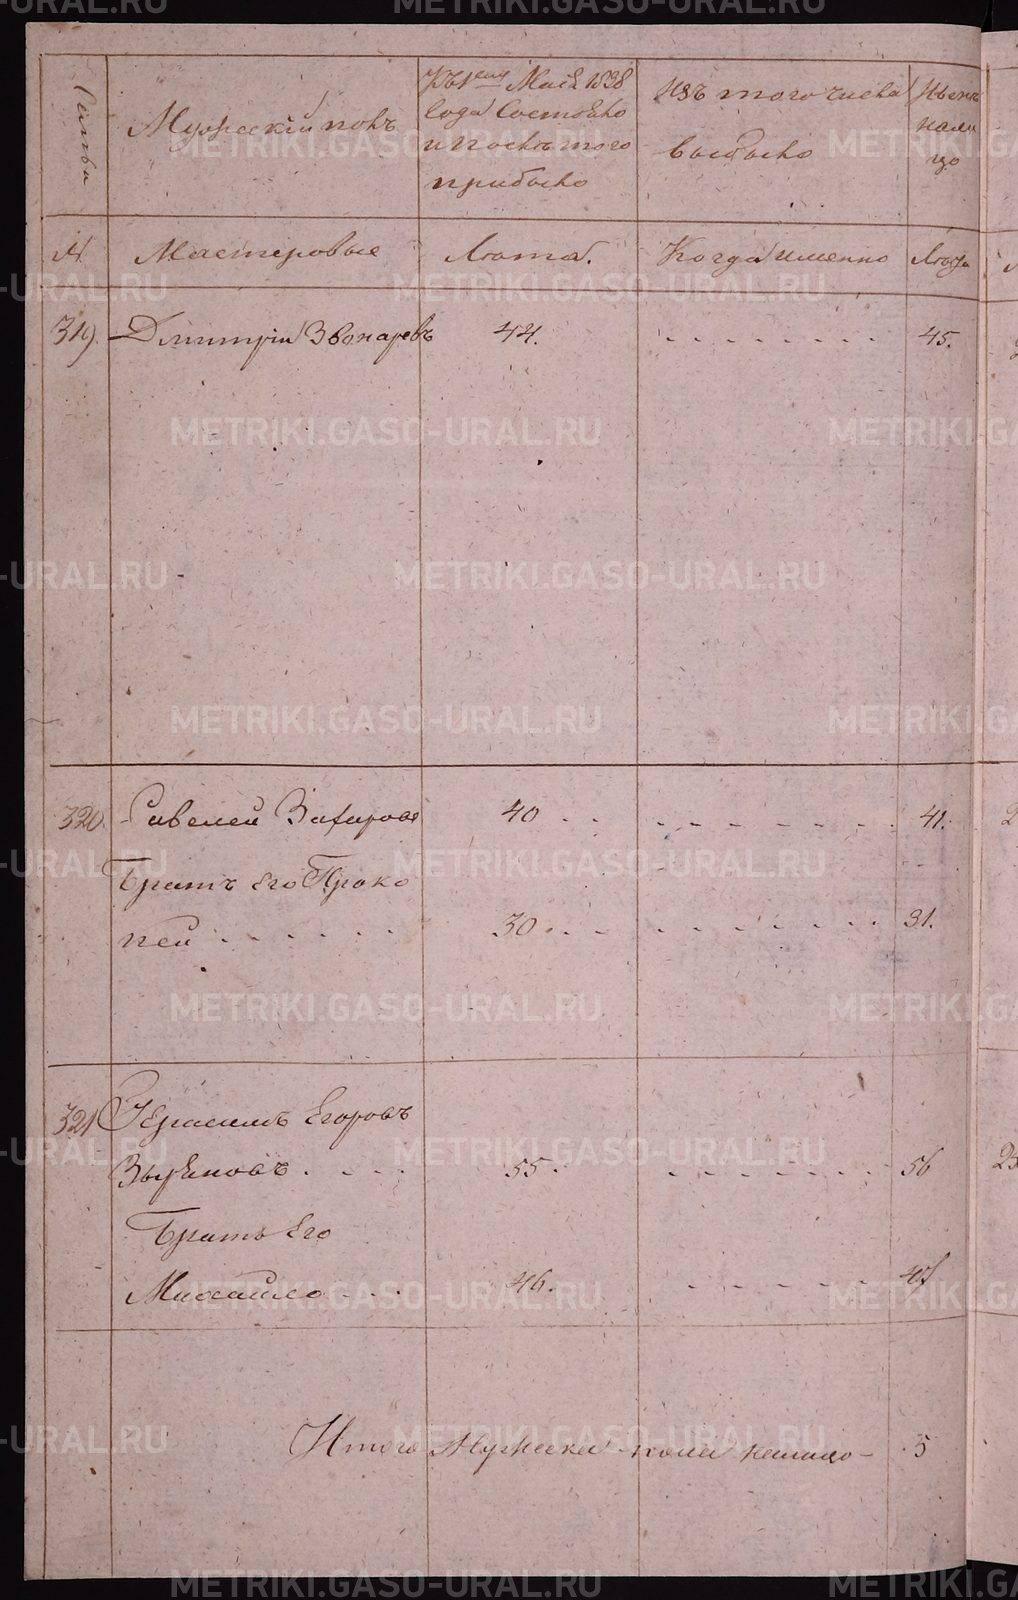 Семьи
Мужескiй полъ
Къ 1ему Маiя 1838
года Состояло
и послѣ того
прибыло
Изъ того числа
выбыло
Нынѣ
нали
цо
№
Мастеровые
Лѣта.
Когда именно
Лѣта
319.
Дмитрiй Звонаревъ
44.
45.
320.
Савелей Захаровъ
40
41.
Братъ его Проко
пей
30
31.
321
Герасимъ Егоровъ
Зыряновъ
55.
56
Братъ Его
Михайло
46.
47
Итого Мужеска пола налицо
5
METRIKI.GASO-URAL.RU